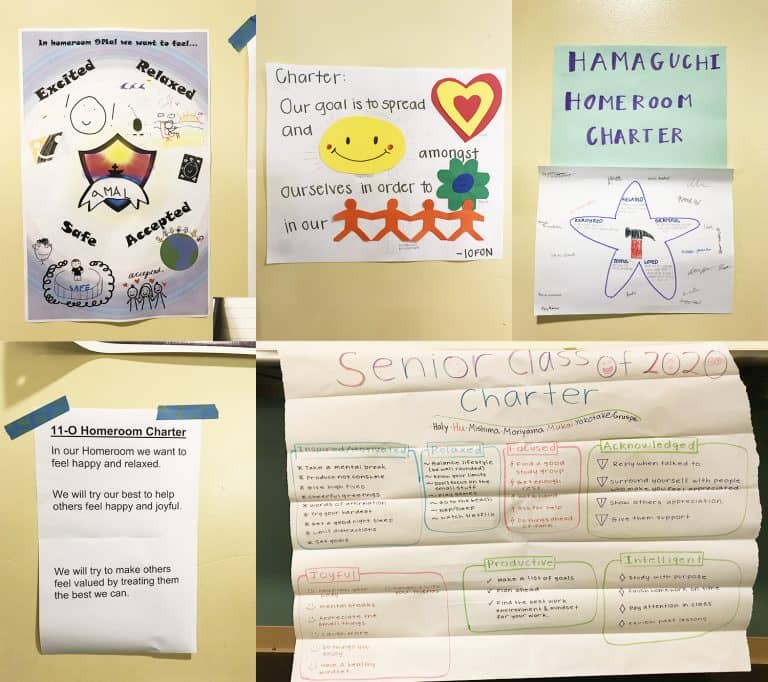 In homeroom 9Mai we want to feel...
Excited
Relaxed
AMAI
Safe
Accepted
SAFE
accepted.
Charter:
Our goal is to spread
and
amongst
ourselves in order to
in our
-10FON
HAMAGUCHI
HOMEROOM
CHARTER
RELAXED
GRATEFUL
JOYFUL
LOVED
11-O Homeroom Charter
In our Homeroom we want to
feel happy and relaxed.
We will try our best to help
others feel happy and joyful.
We will try to make others
feel valued by treating them
the best we can.
Senior Class of 2020
Charter
Holy-Hu-Mishima-Moriyama-Mukai-Yokotake-Gruspe
Inspired/
* Take a mental break
* Produce not consume
* Give high fives
* Cheerful greetings
* Words of affirmation
* Try your hardest
* Get a good night sleep
* Limit distractions
* Set goals
Relaxed
~ Balance lifestyle
(be well rounded)
~ Know your limits
~ Don't focus on the
small stuff
~ Play games
~ Go to the beach
~ Nap/Sleep
~ Watch Netflix
Focused
Find a good
study group
Get enough
rest
Work hard
Ask for help
Do things ahead
of time
Acknowledged
Reply when talked to
Surround yourself with people
who make you feel appreciated
Show others appreciation
Give them support
Joyful
your friends
Mental breaks
Appreciate the
small things
Laugh more
Do things you
enjoy
Have a healthy
mindset
Productive
✓ Make a list of goals
✓ Plan ahead
✓ Find the best work
environment & mindset
for your work.
Intelligent
◊ Study with purpose
◊ Finish homework on time
◊ Pay attention in class
◊ Review past lessons